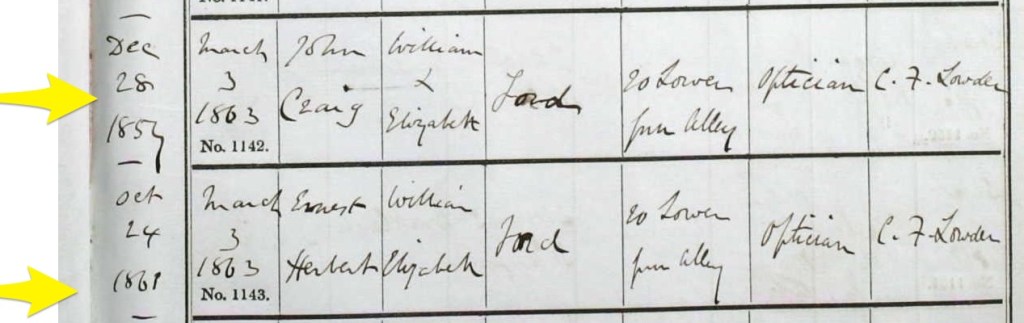 Dec
28
1857
March
3
1863
No. 1142.
John
Craig
William
&
Elizabeth
Ford
20 Lower
Gun Alley
Optician
C. F. Lowder
Oct
24
1861
March
3
1863
No. 1143.
Ernest
Herbert
William
Elizabeth
Ford
20 Lower
Gun Alley
Optician
C. F. Lowder